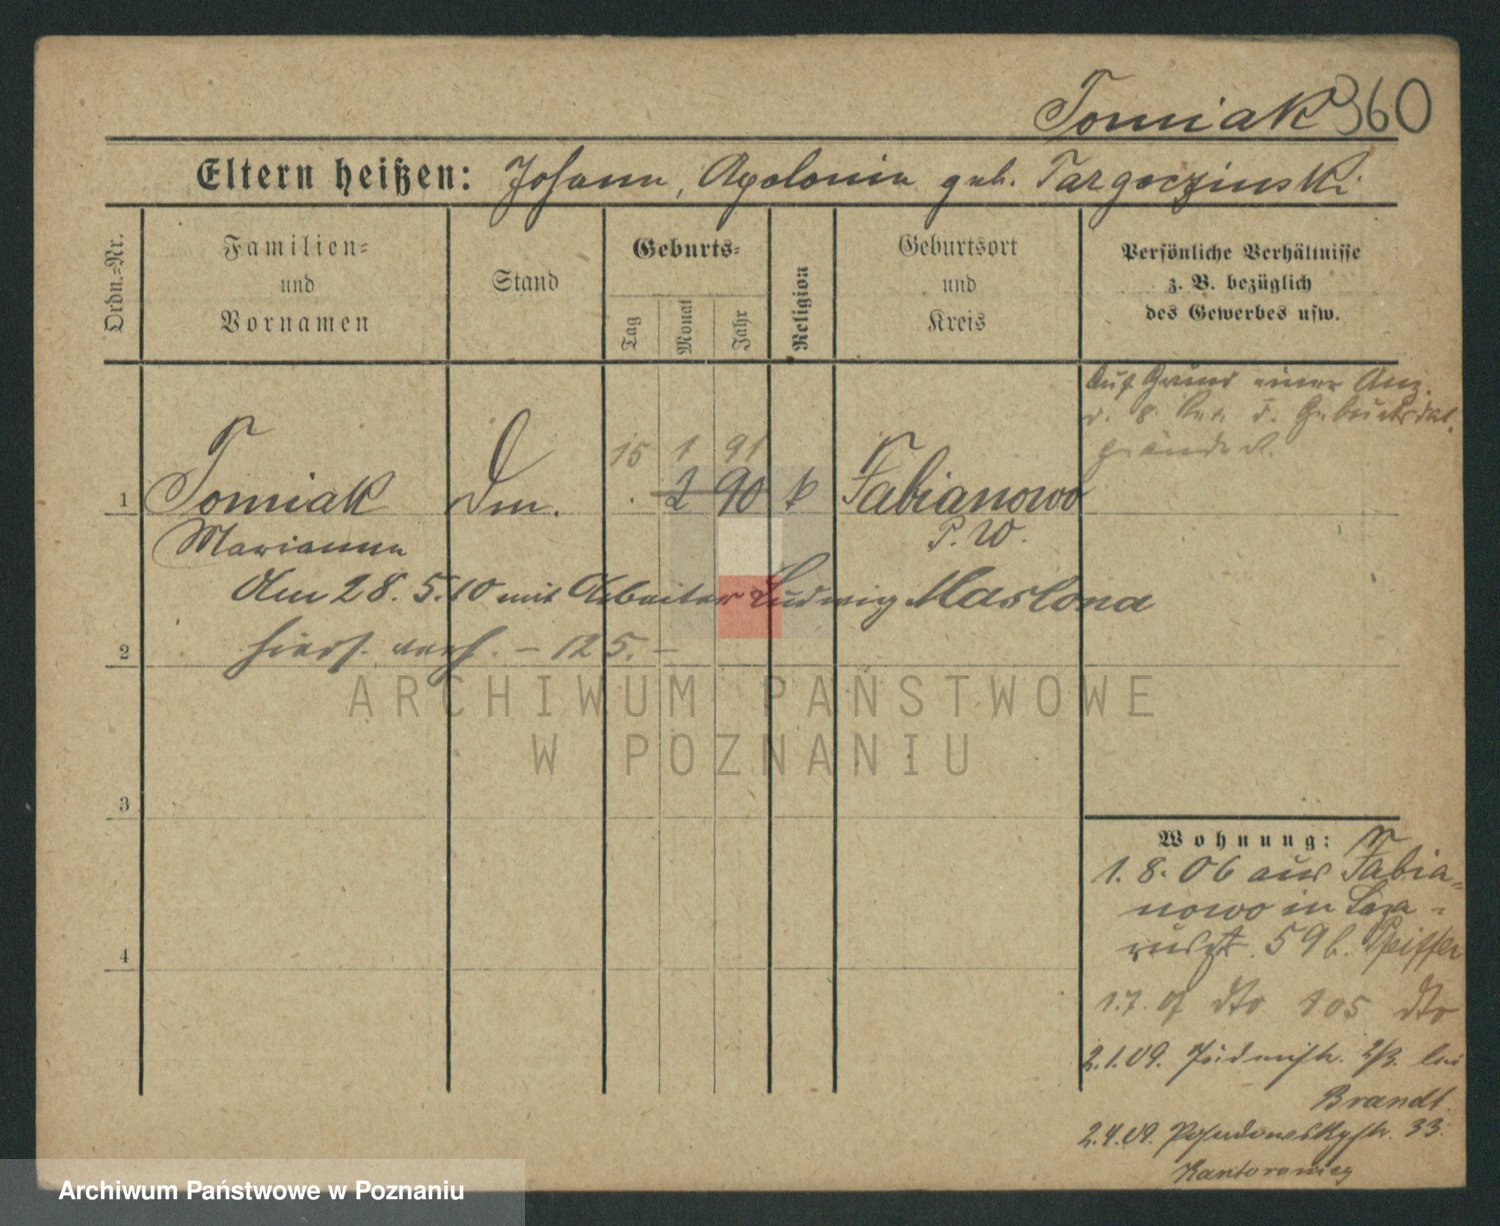 Tomiak 360
Eltern heißen: Johann, Apolonia geb. Targoczinski
Ordn.=Nr.
Familien=
und
Vornamen
Stand
Geburts=
Tag
Monat
Jahr
Religion
Geburtsort
und
Kreis
Persönliche Verhältnisse
z. B. bezüglich
des Gewerbes usw.
Auf Grund einer Anz.
v. 8. d. Geburtsdat.
geändert.
15 1 91
1 Tomiak Dm. 2 90 k Fabianowo
Marianna P. W.
Am 28. 5. 10 mit Arbeiter Ludwig Maslona
2 hiers. verh. – 125. –
ARCHIWUM PAŃSTWOWE
W POZNANIU
3
4
Wohnung:
1. 8. 06 aus Fabia-
nowo in Laza-
russt. 59 b. Pfeiffer
1.7. 07 dto 105 dto
2.1.09. 2/3. bei
Brandt.
2.4.09. Posadowskystr. 33.
Kantorowicz
Archiwum Państwowe w Poznaniu